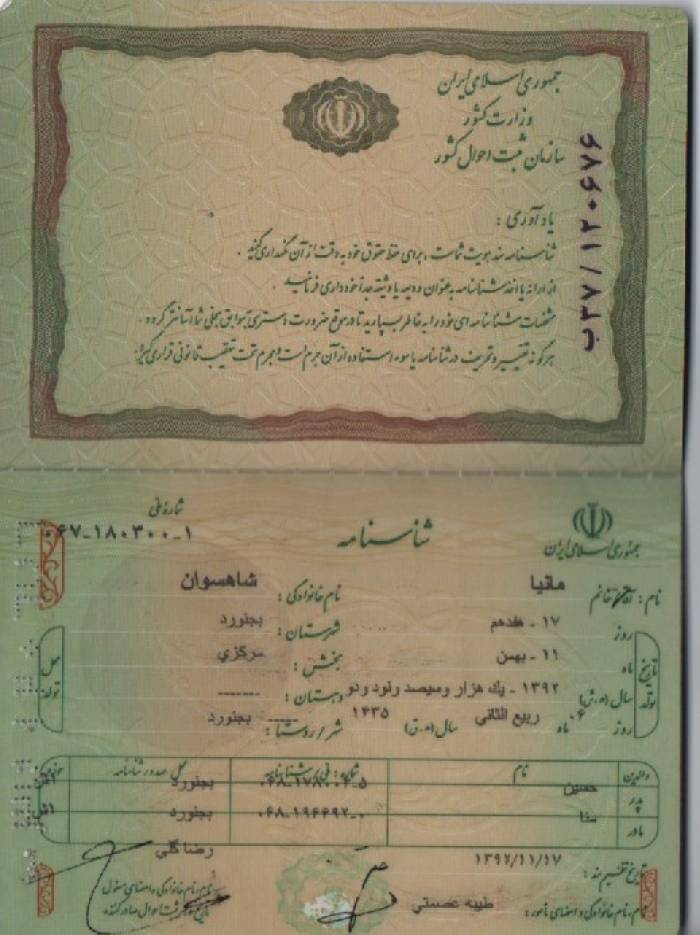 جمهوری اسلامی ایران
وزارت کشور
سازمان ثبت احوال کشور
ب۳۷/۱۲۰۶۷۶
یادآوری :
شناسنامه سند هویت شماست ، برای حفظ حقوق خود به دقت از آن نگهداری کنید .
از ارائه یا اخذ شناسنامه به عنوان ودیعه یا وثیقه جداً خودداری فرمائید
مشخصات شناسنامه ای خود را به خاطر بسپارید تا در موقع ضرورت دسترسی به سوابق سجلی شما آسانتر گردد .
هر گونه تغییر و تحریف در شناسنامه یا سوء استفاده از آن جرم است و مجرم تحت تعقیب قانونی قرار می گیرد
جمهوری اسلامی ایران
شناسنامه
شماره ملی
۰۶۷-۱۸۰۳۰۰-۱
نام : آقا/خانم مانیا نام خانوادگی : شاهسوان
تاریخ تولد روز ۱۷ - هفدهم محل تولد شهرستان : بجنورد
ماه ۱۱ - بهمن بخش : مرکزي
سال (ه.ش) ۱۳۹۲ - يك هزار وسيصد ونود ودو دهستان : -------
روز ۰۶ ماه ربیع الثانی سال (ه.ق) ۱۴۳۵ شهر/روستا : ----- بجنورد
والدین نام شماره ملی / شناسنامه محل صدور شناسنامه
پدر حسین بجنورد
مادر ۰۶۸-۱۹۶۶۹۲-۰ بجنورد
تاریخ تنظیم سند : ۱۳۹۲/۱۱/۱۷ رضا گلي
نام، نام خانوادگی و امضای مامور : طیبه عصمتي
نام، نام خانوادگی و امضای مسئول